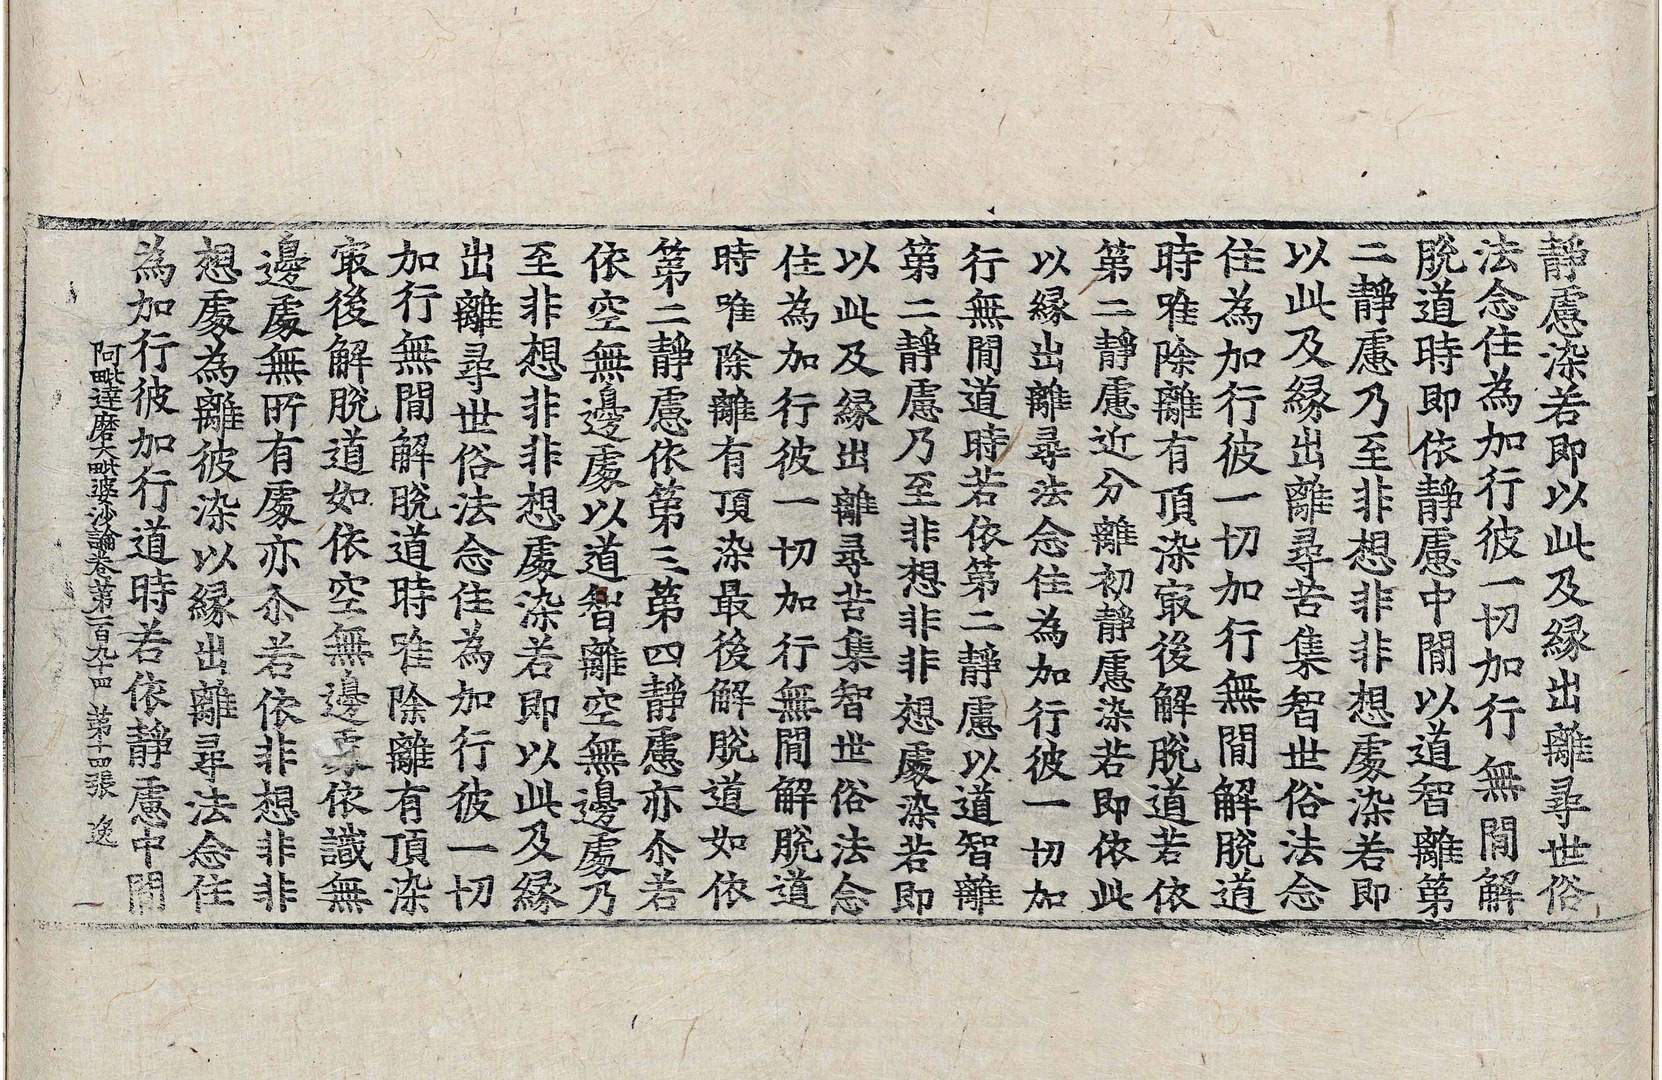 靜慮染若即以此及緣出離尋世俗
法念住為加行彼一切加行無間解
脫道時即依靜慮中間以道智離第
二靜慮乃至非想非非想處染若即
以此及緣出離尋苦集智世俗法念
住為加行彼一切加行無間解脫道
時唯除離有頂染㝡後解脫道若依
第二靜慮近分離初靜慮染若即依此
以緣出離尋法念住為加行彼一切加
行無間道時若依第二靜慮以道智離
第二靜慮乃至非想非非想處染若即
以此及緣出離尋苦集智世俗法念
住為加行彼一切加行無間解脫道
時唯除離有頂染最後解脫道如依
第二靜慮依第三第四靜慮亦尒若
依空無邊處以道智離空無邊處乃
至非想非非想處染若即以此及緣
出離尋世俗法念住為加行彼一切
加行無間解脫道時唯除離有頂染
㝡後解脫道如依空無邊處依識無
邊處無所有處亦尒若依非想非非
想處為離彼染以緣出離尋法念住
為加行彼加行道時若依靜慮中間
阿毗達磨大毗婆沙論卷第一百九十四 第十四張 逸